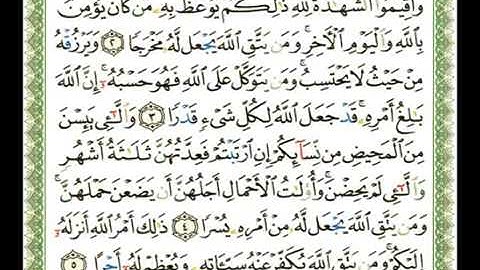 وَأَقِيمُوا۟ ٱلشَّهَٰدَةَ لِلَّهِ ذَٰلِكُمْ يُوعَظُ بِهِۦ مَن كَانَ يُؤْمِنُ
بِٱللَّهِ وَٱلْيَوْمِ ٱلْءَاخِرِ وَمَن يَتَّقِ ٱللَّهَ يَجْعَل لَّهُۥ مَخْرَجًا ٢ وَيَرْزُقْهُ
مِنْ حَيْثُ لَا يَحْتَسِبُ وَمَن يَتَوَكَّلْ عَلَى ٱللَّهِ فَهُوَ حَسْبُهُۥٓ إِنَّ ٱللَّهَ
بَٰلِغُ أَمْرِهِۦ قَدْ جَعَلَ ٱللَّهُ لِكُلِّ شَىْءٍ قَدْرًا ٣ وَٱلَّٰٓـِٔى يَئِسْنَ
مِنَ ٱلْمَحِيضِ مِن نِّسَآئِكُمْ إِنِ ٱرْتَبْتُمْ فَعِدَّتُهُنَّ ثَلَٰثَةُ أَشْهُرٍ
وَٱلَّٰٓـِٔى لَمْ يَحِضْنَ وَأُو۟لَٰتُ ٱلْأَحْمَالِ أَجَلُهُنَّ أَن يَضَعْنَ حَمْلَهُنَّ
وَمَن يَتَّقِ ٱللَّهَ يَجْعَل لَّهُۥ مِنْ أَمْرِهِۦ يُسْرًا ٤ ذَٰلِكَ أَمْرُ ٱللَّهِ أَنزَلَهُۥٓ
إِلَيْكُمْ وَمَن يَتَّقِ ٱللَّهَ يُكَفِّرْ عَنْهُ سَيِّـَٔاتِهِۦ وَيُعْظِمْ لَهُۥٓ أَجْرًا ٥